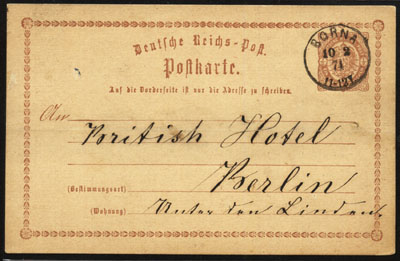 Deutsche Reichs-Post.
Postkarte.
BORNA
10 2
74
11-12V
Auf die Vorderseite ist nur die Adresse zu schreiben.
An
British Hotel
Berlin
(Bestimmungsort)
(Wohnung)
Unter den Linden.